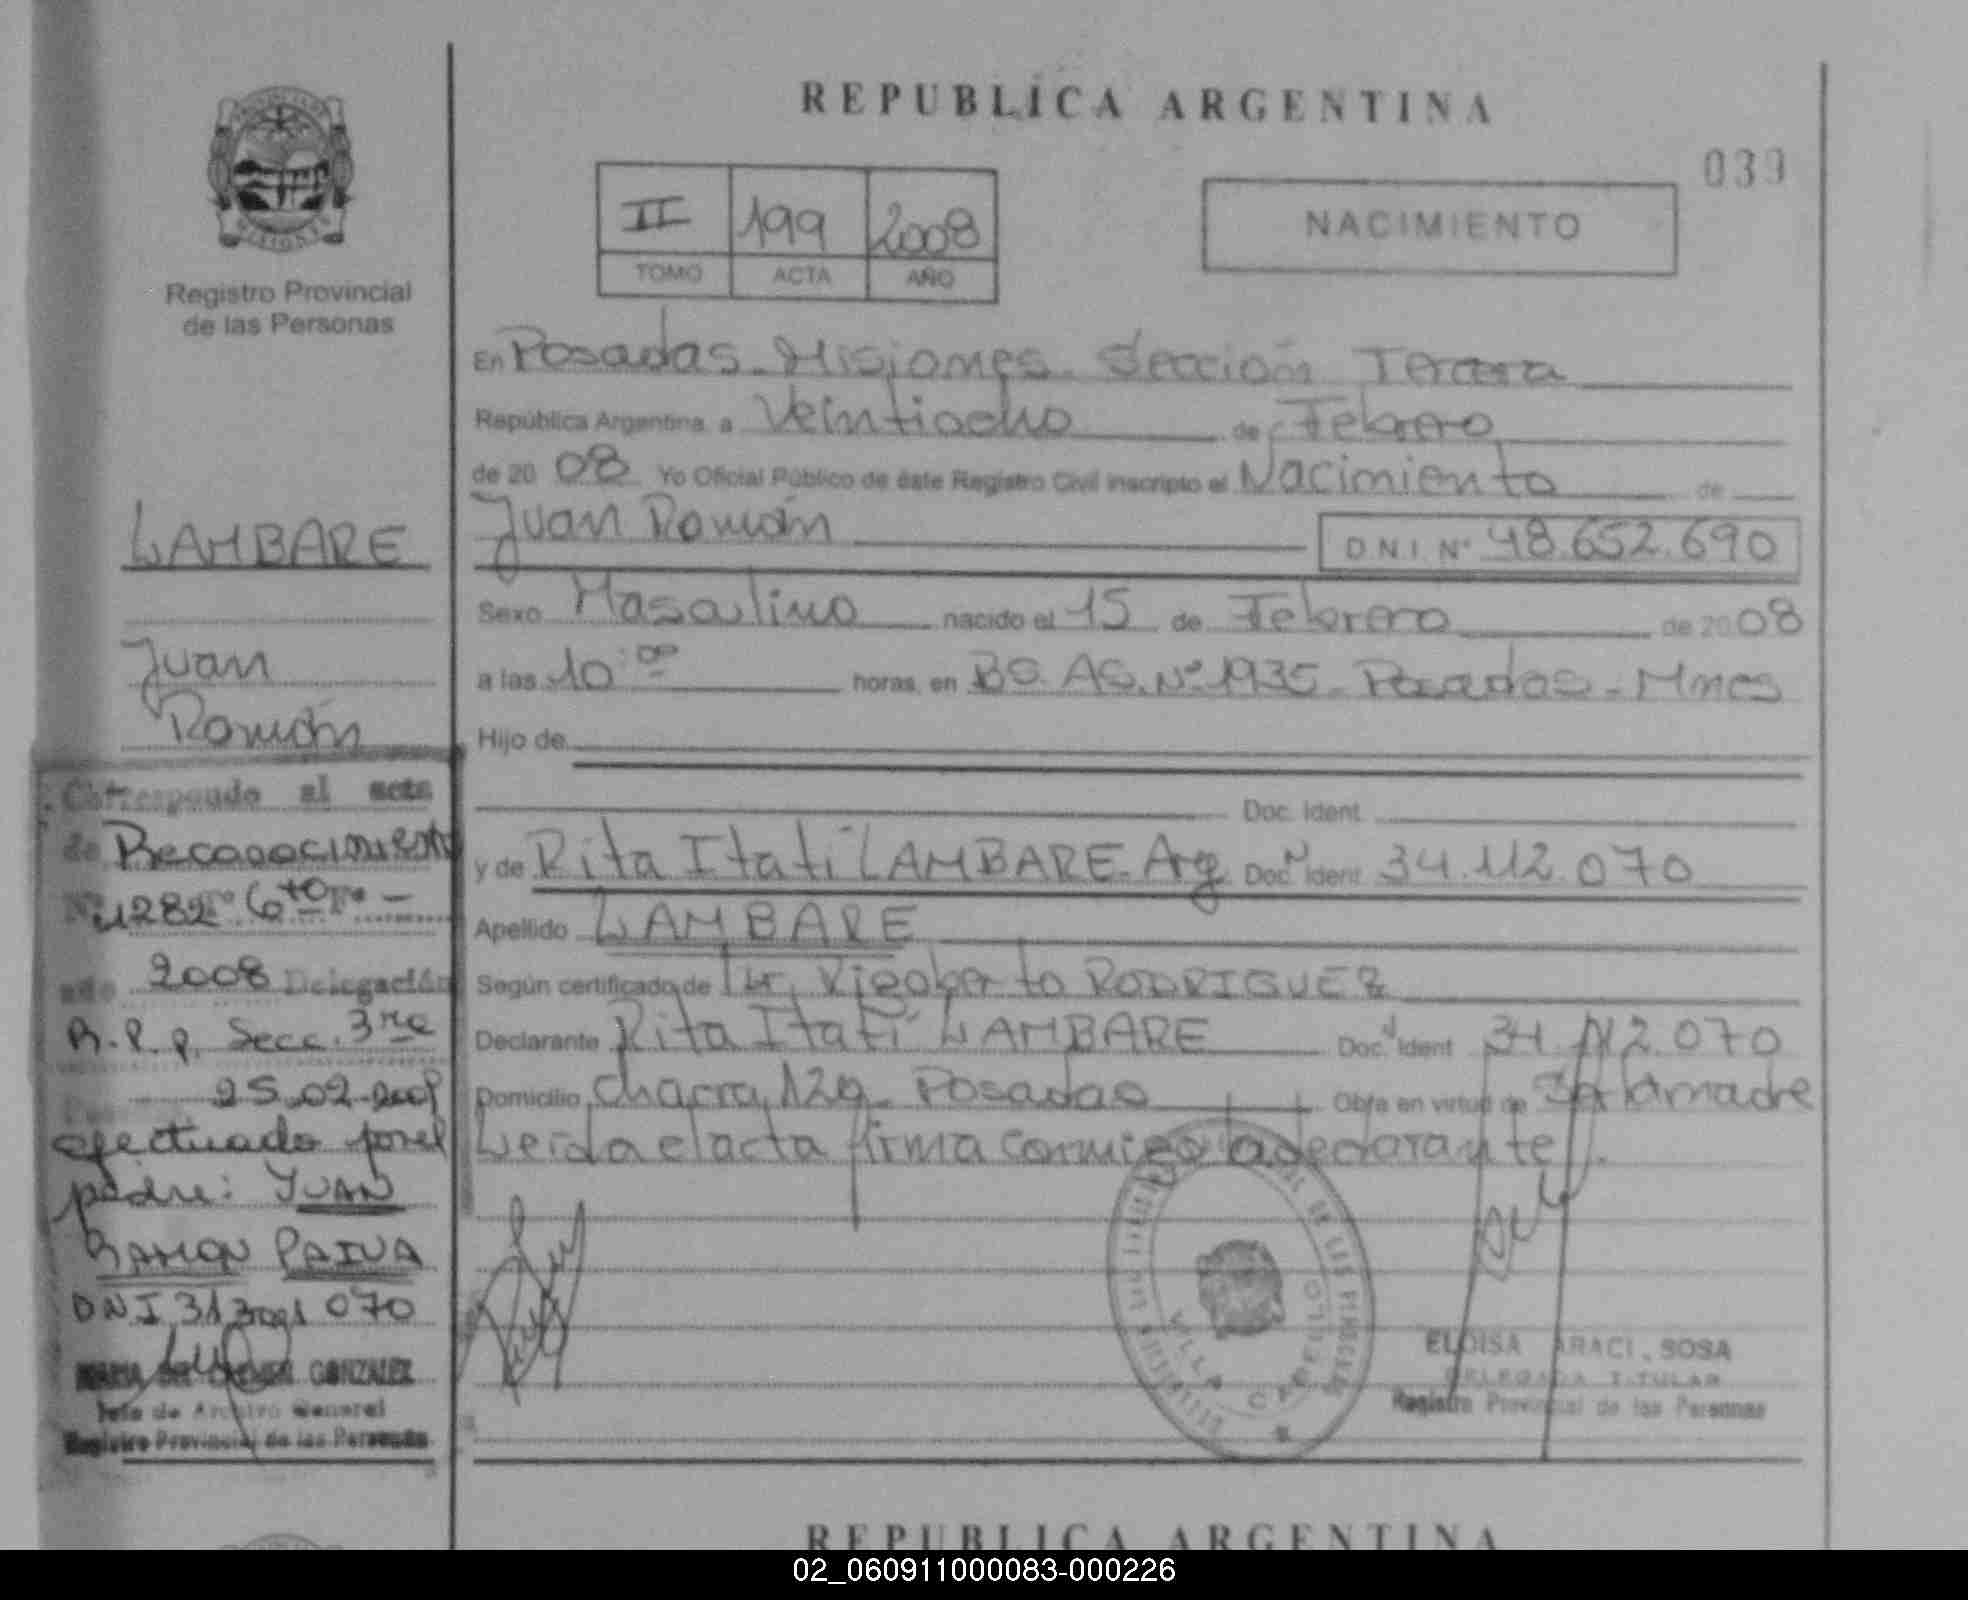 REPUBLICA ARGENTINA
039
II 199 2008
TOMO ACTA AÑO
NACIMIENTO
Registro Provincial
de las Personas
LAMBARE
Juan
Román
En Posadas - Misiones - Sección Tercera
República Argentina a Veintiocho de Febrero
de 20 08 Yo Oficial Público de éste Registro Civil inscripto el Nacimiento de
Juan Román D.N.I. Nº 48.652.690
Sexo Masculino nacido el 15 de Febrero de 20 08
a las 10:00 horas en BS. AS. Nº 1935 - Posadas - Mnes
Hijo de
Doc. Ident.
y de Rita Itatí LAMBARE - Arg Doc. Ident. 34.112.070
Apellido LAMBARE
Según certificado de Dr. Rigoberto RODRIGUEZ
Declarante Rita Itatí LAMBARE Doc. Ident 34.112.070
Domicilio Chacra 129 - Posadas Obra en virtud de Ser la madre
Leída el acta firma conmigo la declarante.
Corresponde al acta
de Reconocimiento
Nº 1282 Tº 6to Fº -
año 2008 Delegación
R.P.P. Secc. 3ra
efectuado por el
padre: JUAN
RAMON PAIVA
DNI 070
GONZALEZ
Jefe de Archivo General
Registro Provincial de las Personas
DE LAS PERSONAS
VILLA CABELLO
ELOISA ARACI SOSA
DELEGADA TITULAR
Registro Provincial de las Personas
REPUBLICA ARGENTINA
02_060911000083-000226